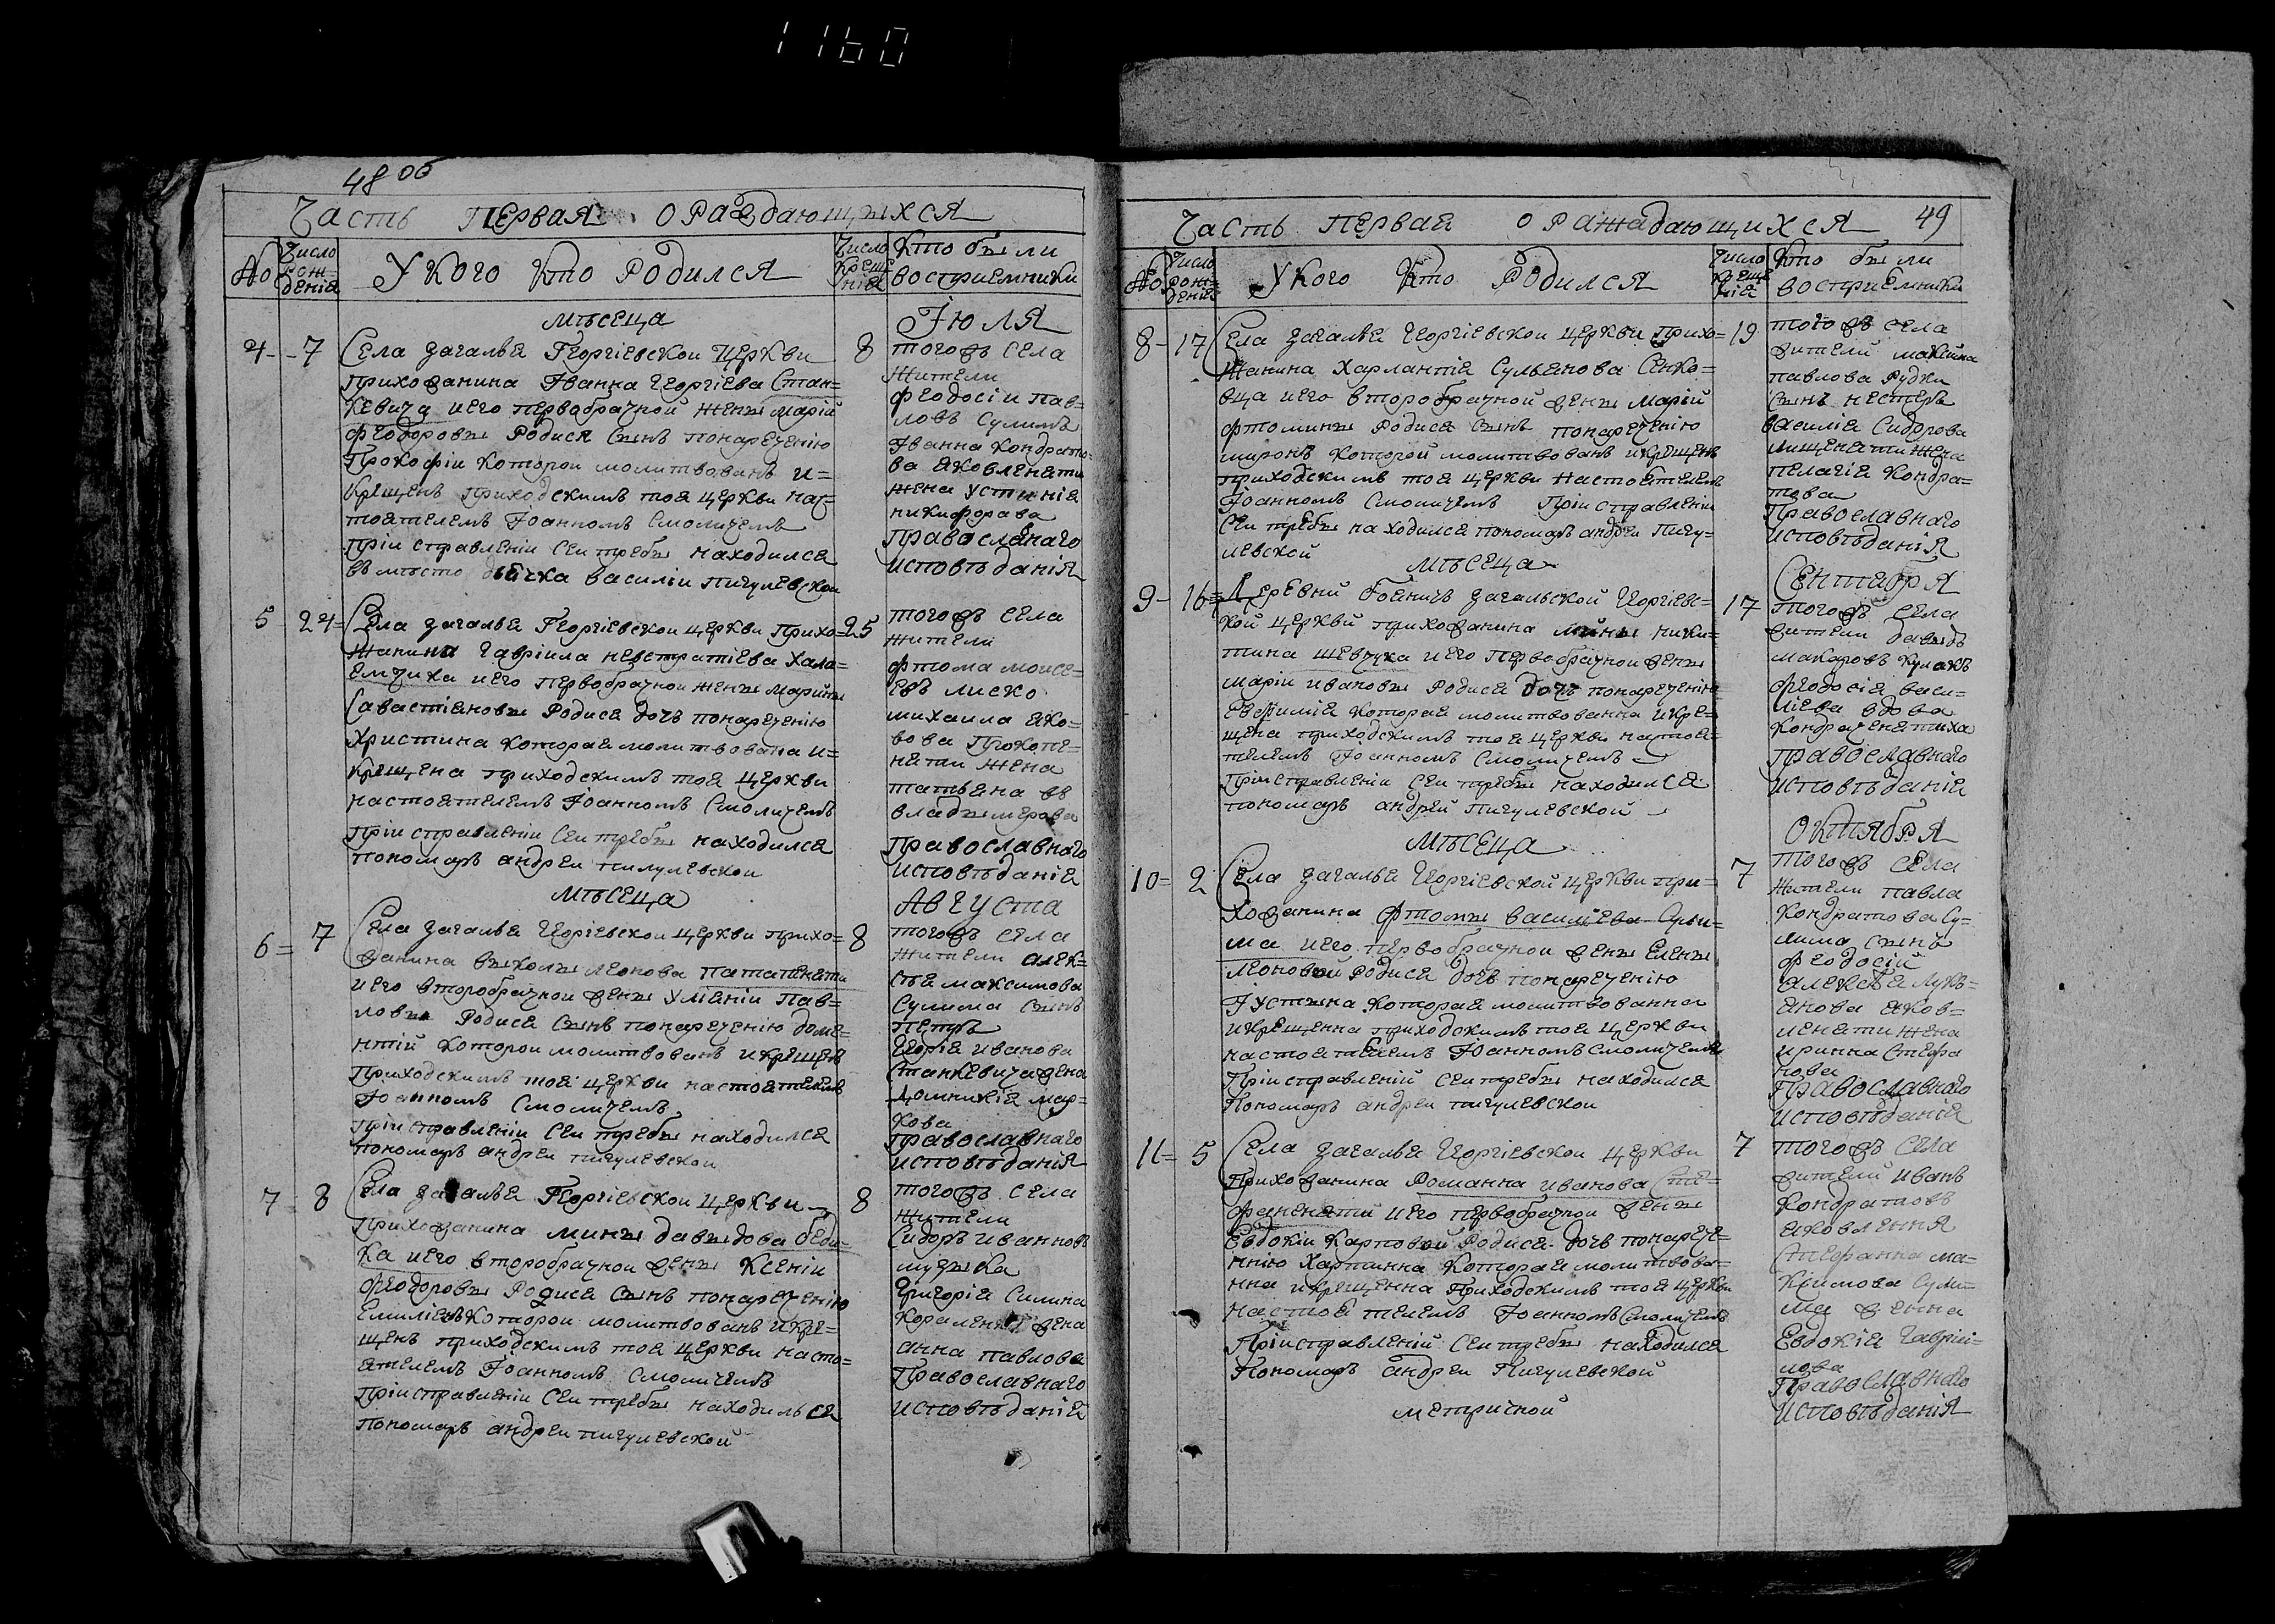 1160
48 об
Часть Первая о Раждающихся
№
Число рож=дения
У Кого Кто Родился
Число Крещения
Кто были восприемники
Мѣсеца
Іюля
4 - 7
Села Загалья Георгіевской Церкви
прихожанина Іванна Георгіева Стан=
кевича и его первобрачной жены Маріи
Феодоровы Родися Сынъ понаречению
Прокофіи которои молитвованъ и=
крещенъ приходскимъ тоя церкви нас=
тоятелемъ Іоанномъ Смоличемъ
При исправленіи Сеи требы находился
въ мѣсто дьячка василіи пигулевскои
8
тогожъ села
жители
феодосіи пав=
ловъ Сулимъ
Іванна кондрато=
ва яковленяти
жена устинія
никифорава
Православнаго
исповѣданія
5 - 24=
Села Загалья Георгіевскои церкви прихо=
жанина Гавріила невстратіева хала=
емчика и его первобрачнои жены марины
Савастіяновы Родися дочъ понаречению
Христина которая молитвована и=
крещена приходскимъ тоя церкви
настоятелемъ Іоанномъ Смоличемъ
При исправленіи Сеи требы находился
пономаръ андреи пигулевскои
25
тогожъ села
жители
фтома моисе=
евъ лиско
михаила яко=
вова Прокопе=
няти жена
татьяна
владымерава
Православнаго
исповѣданія
Мѣсеца
Августа
6 = 7
Села Загалья Георгіевскои церкви прихо=
жанина выколы леонова паташеняти
и его второбрачнои жены уліяніи пав=
ловы Родися Сынъ понаречению доме=
нтіи которои молитвованъ и крещенъ
Приходскимъ тоя церкви настоятелемъ
Іоанномъ Смоличемъ
При исправленіи Сеи требы находился
пономаръ андреи пигулевскои
8
тогожъ села
жители алек=
сѣя максимова
Сулима сынъ
Петръ
Георгія иванова
Станкевича жена
Домникія мар=
кова
Православнаго
исповѣданія
7 = 8
Села Загалья Георгіевскои церкви
прихожанина мины давыдова беди=
ка и его второбрачнои жены Ксеніи
феодоровы Родися Сынъ понаречению
Емиліянъ которои молитвованъ и кре=
щенъ приходскимъ тоя церкви насто=
ятелемъ Іоанномъ Смоличемъ
При исправленіи Сеи требы находилься
пономаръ андреи пигулевской
8
тогожъ села
жители
Сидоръ иванновъ
музыка
Григорія Силина
жена
анна павлова
Православнаго
исповѣданія
49
Часть Первая о Раждающихся
№
Число рож=дения
У Кого Кто Родился
Число Крещения
Кто были восприемники
8 - 17
Села Загалья Георгіевской церкви прихо=
жанина Харлантія Сульянова Сенко=
вца и его второбрачной жены Маріи
фтомины Родися Сынъ понаречению
миронъ которой молитвованъ и крещенъ
приходскимъ тоя церкви настоятелемъ
Іоанномъ Смоличемъ При исправлении
Сеи требы находился пономаръ андреи Пигу=
левской
19
тогожъ села
жители максима
павлова Рудки
Сынъ нестеръ
василія Сидорова
жена
пелагія Кондра=
това
Православнаго
исповѣданія
Мѣсеца
Сентября
9 - 16=
Деревни бояничъ загальской Георгіевс=
кой церкви прихожанина мины ники=
тина шевчука и его первобрачнои жены
Маріи ивановы Родися дочъ понаречению
Евфимія которая молитвованна и кре=
щена приходскимъ тоя церкви настоя=
телемъ Іоанномъ Смоличемъ
При исправленіи Сеи требы находился
пономаръ андрей Пигулевской
17
тогожъ села
жители давыдъ
макаровъ кулакъ
феодосія васи=
ліева вдова
Кондраченятиха
Православнаго
исповѣданія
Мѣсеца
Октября
10 = 2
Села Загалья Георгіевской церкви при=
хожанина фтомы василіева Яры=
ма и его первобрачной жены Елены
Леоновой Родися дочъ понаречению
Іустына которая молитвованна
и крещенна приходскимъ тоя церкви
настоятелемъ Іоанномъ Смоличемъ
При исправленій Сеи требы находился
Пономаръ андреи пигулевскои
7
тогожъ села
жители павла
Кондратова Су=
лима сынъ
феодосій
алексѣя лукъ=
янова яков=
леняти жена
иринна Стефа
нова
Православнаго
исповѣданія
11 = 5
Села Загалья Георгіевскои церкви
Прихожанина Романна иванова Сте=
фаненяти и его первобрачной жены
Евдокіи Карповой Родися дочъ понарече=
нию Харитинна которая молитвова=
нна и крещенна Приходскимъ тоя церкви
настоятелемъ Іоанномъ Смоличемъ
При исправленій Сеи требы находился
Пономаръ андреи Пигулевской
7
тогожъ села
жители иванъ
Кондратовъ
яковленя
Стефанна ма=
ксимова Сули=
мы жена
Евдокія Гавріи=
лова
Православнаго
исповѣданія
метричной